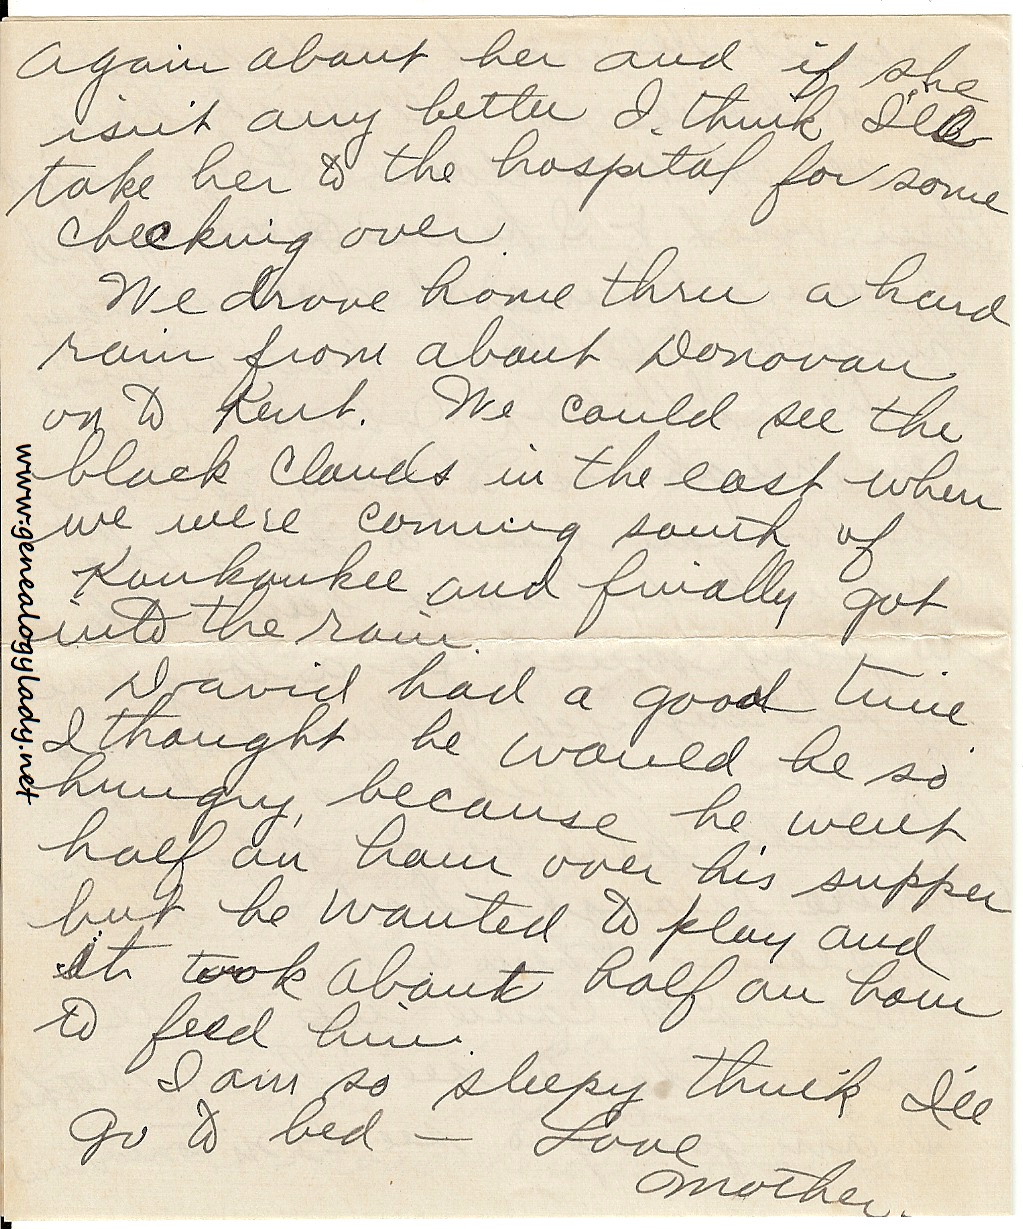 again about her and if she
isn't any better I think I'll
take her to the hospital for some
checking over
We drove home thru a hard
rain from about Donovan
on to Kent. We could see the
black clouds in the east when
we were coming south of
Kankakee and finally got
into the rain.
David had a good time
I thought he would be so
hungry, because he went
half an hour over his supper
but he wanted to play and
it took about half an hour
to feed him.
I am so sleepy think I'll
go to bed — Love
Mother.
www.genealogylady.net